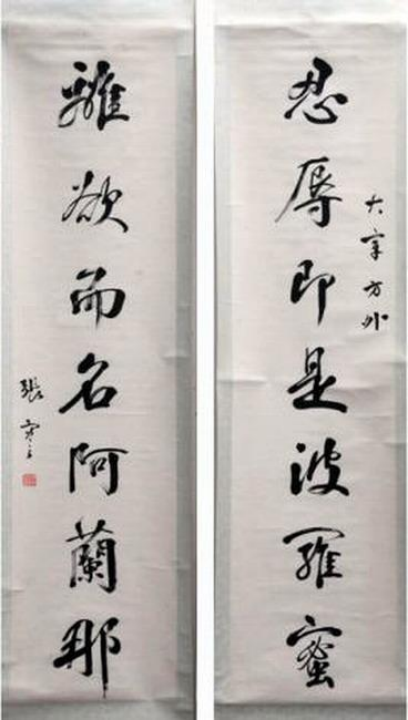 忍辱即是波羅蜜
大宰方外
離欲而名阿蘭那
張寒